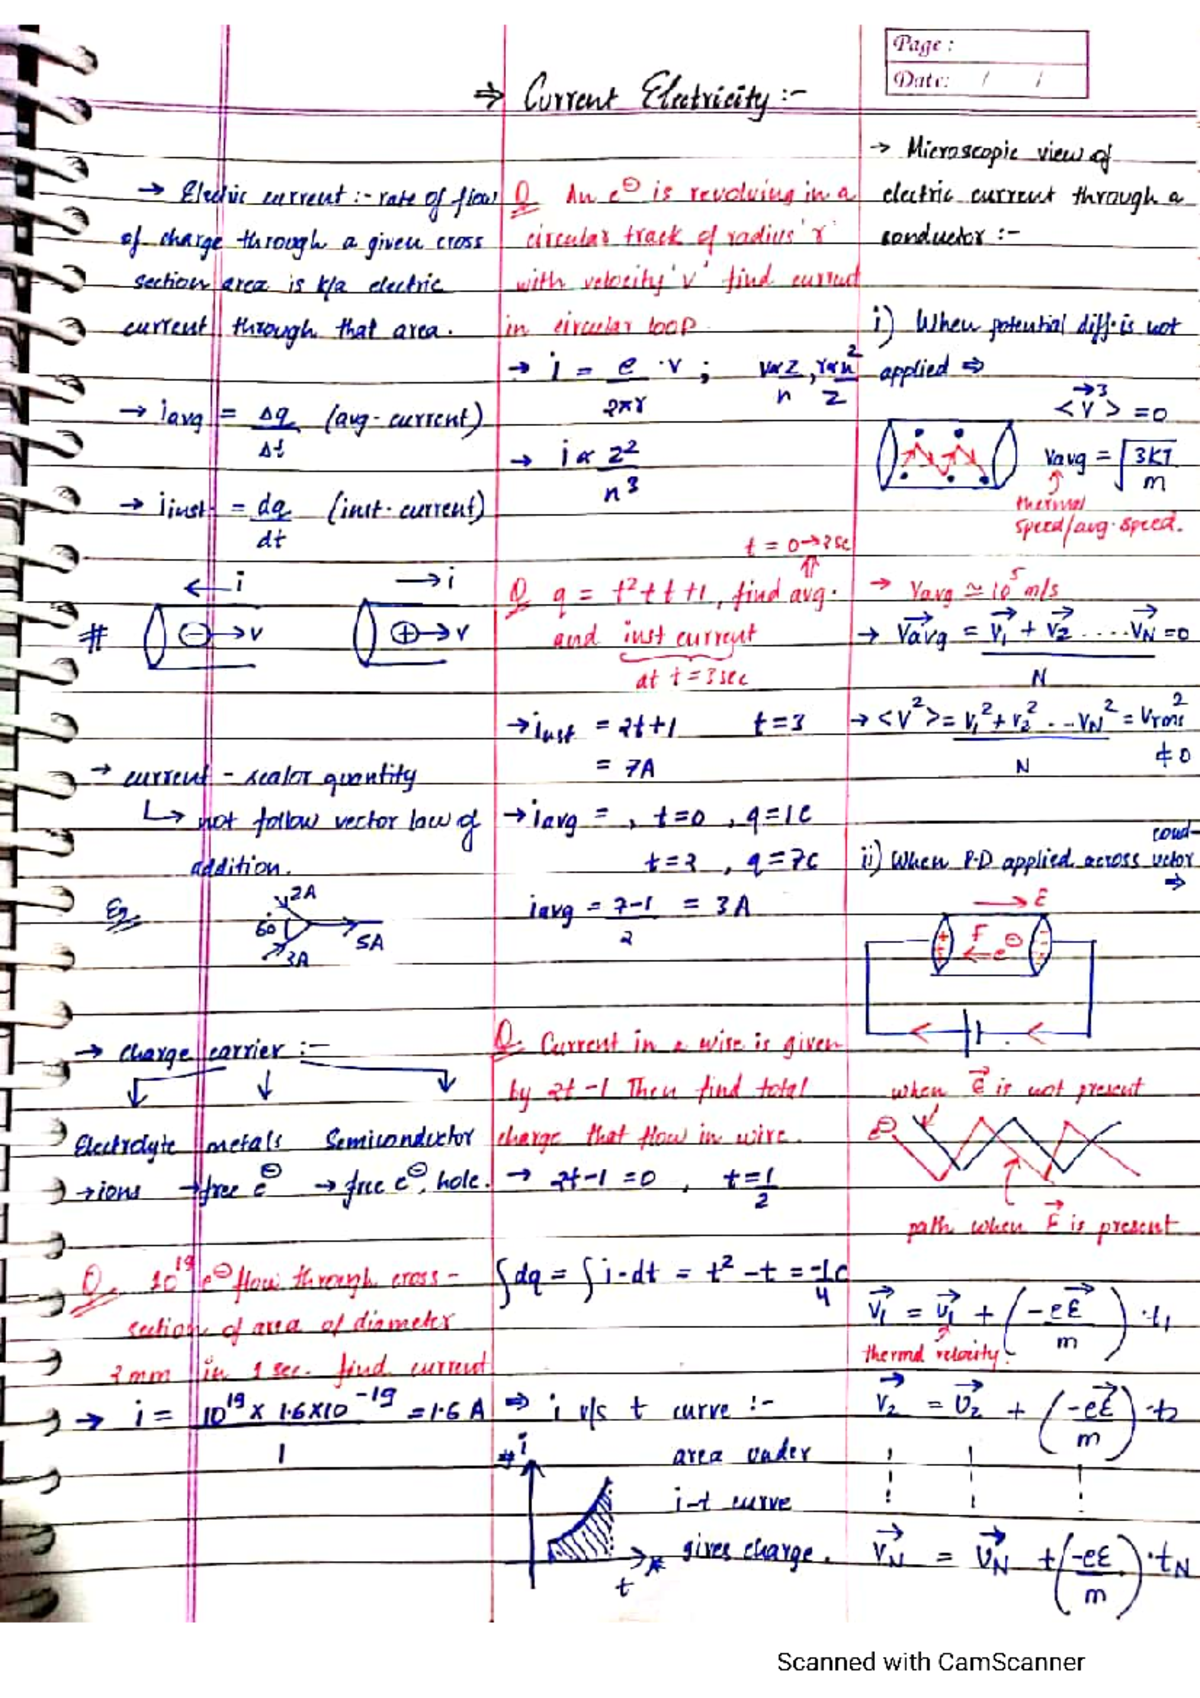 Page :
Date: / /
⇒ Current Electricity :-
→ Electric current :- rate of flow
of charge through a given cross
section area is k/a electric
current through that area.
→ iavg = Δq/Δt (avg. current)
→ iinst = dq/dt (inst. current)
← i → i
# ⊖→v ⊕→v
→ current - scalar quantity
↳ not follow vector law of
addition.
Eg.
2A
60° 5A
3A
→ charge carrier :-
Electrolyte metals Semiconductor
→ions →free e⊖ →free e⊖, hole.
Q. 10^19 e⊖ flow through cross-
section of area of diameter
2mm in 1 sec. find current
→ i = 10^19 x 1.6x10^-19/1 = 1.6 A
Q An e⊖ is revolving in a
circular track of radius 'r'
with velocity 'v' find current
in circular loop.
→ i = e/2πr · v ; v∝z/n, r∝n²/z
→ i ∝ z²/n³
t = 0→2sec
Q q = t²+t+1, find avg.
and inst current
at t=3sec
→iinst = 2t+1 t=3
= 7A
→iavg = , t=0 , q=1c
t=2 , q=7c
iavg = 7-1/2 = 3A
Q. Current in a wire is given
by 2t-1 Then find total
charge that flow in wire.
→ 2t-1=0 , t=1/2
∫dq = ∫i·dt = t²-t = -1/4 c
⇒ i v/s t curve :-
# i area under
i-t curve
gives charge.
t
→ Microscopic view of
electric current through a
conductor :-
i) When potential diff. is not
applied ⇒
<v→> = 0
vavg = √3KT/m
thermal
speed/avg.speed.
→ vavg ≃ 10^5 m/s
→ v→avg = v→1 + v→2 ....v→N/N = 0
→ <v²> = v1²+v2²...vN²/N = vrms²
≠ 0
ii) When P.D applied across cond-
uctor ⇒
→ E
+ F e⊖ -
when E→ is not present
e⊖
path when E→ is present
v→1 = u→1 + (-eE→/m)·t1
thermal velocity.
v→2 = u→2 + (-eE→/m)·t2
v→N = u→N + (-eE/m)·tN
Scanned with CamScanner